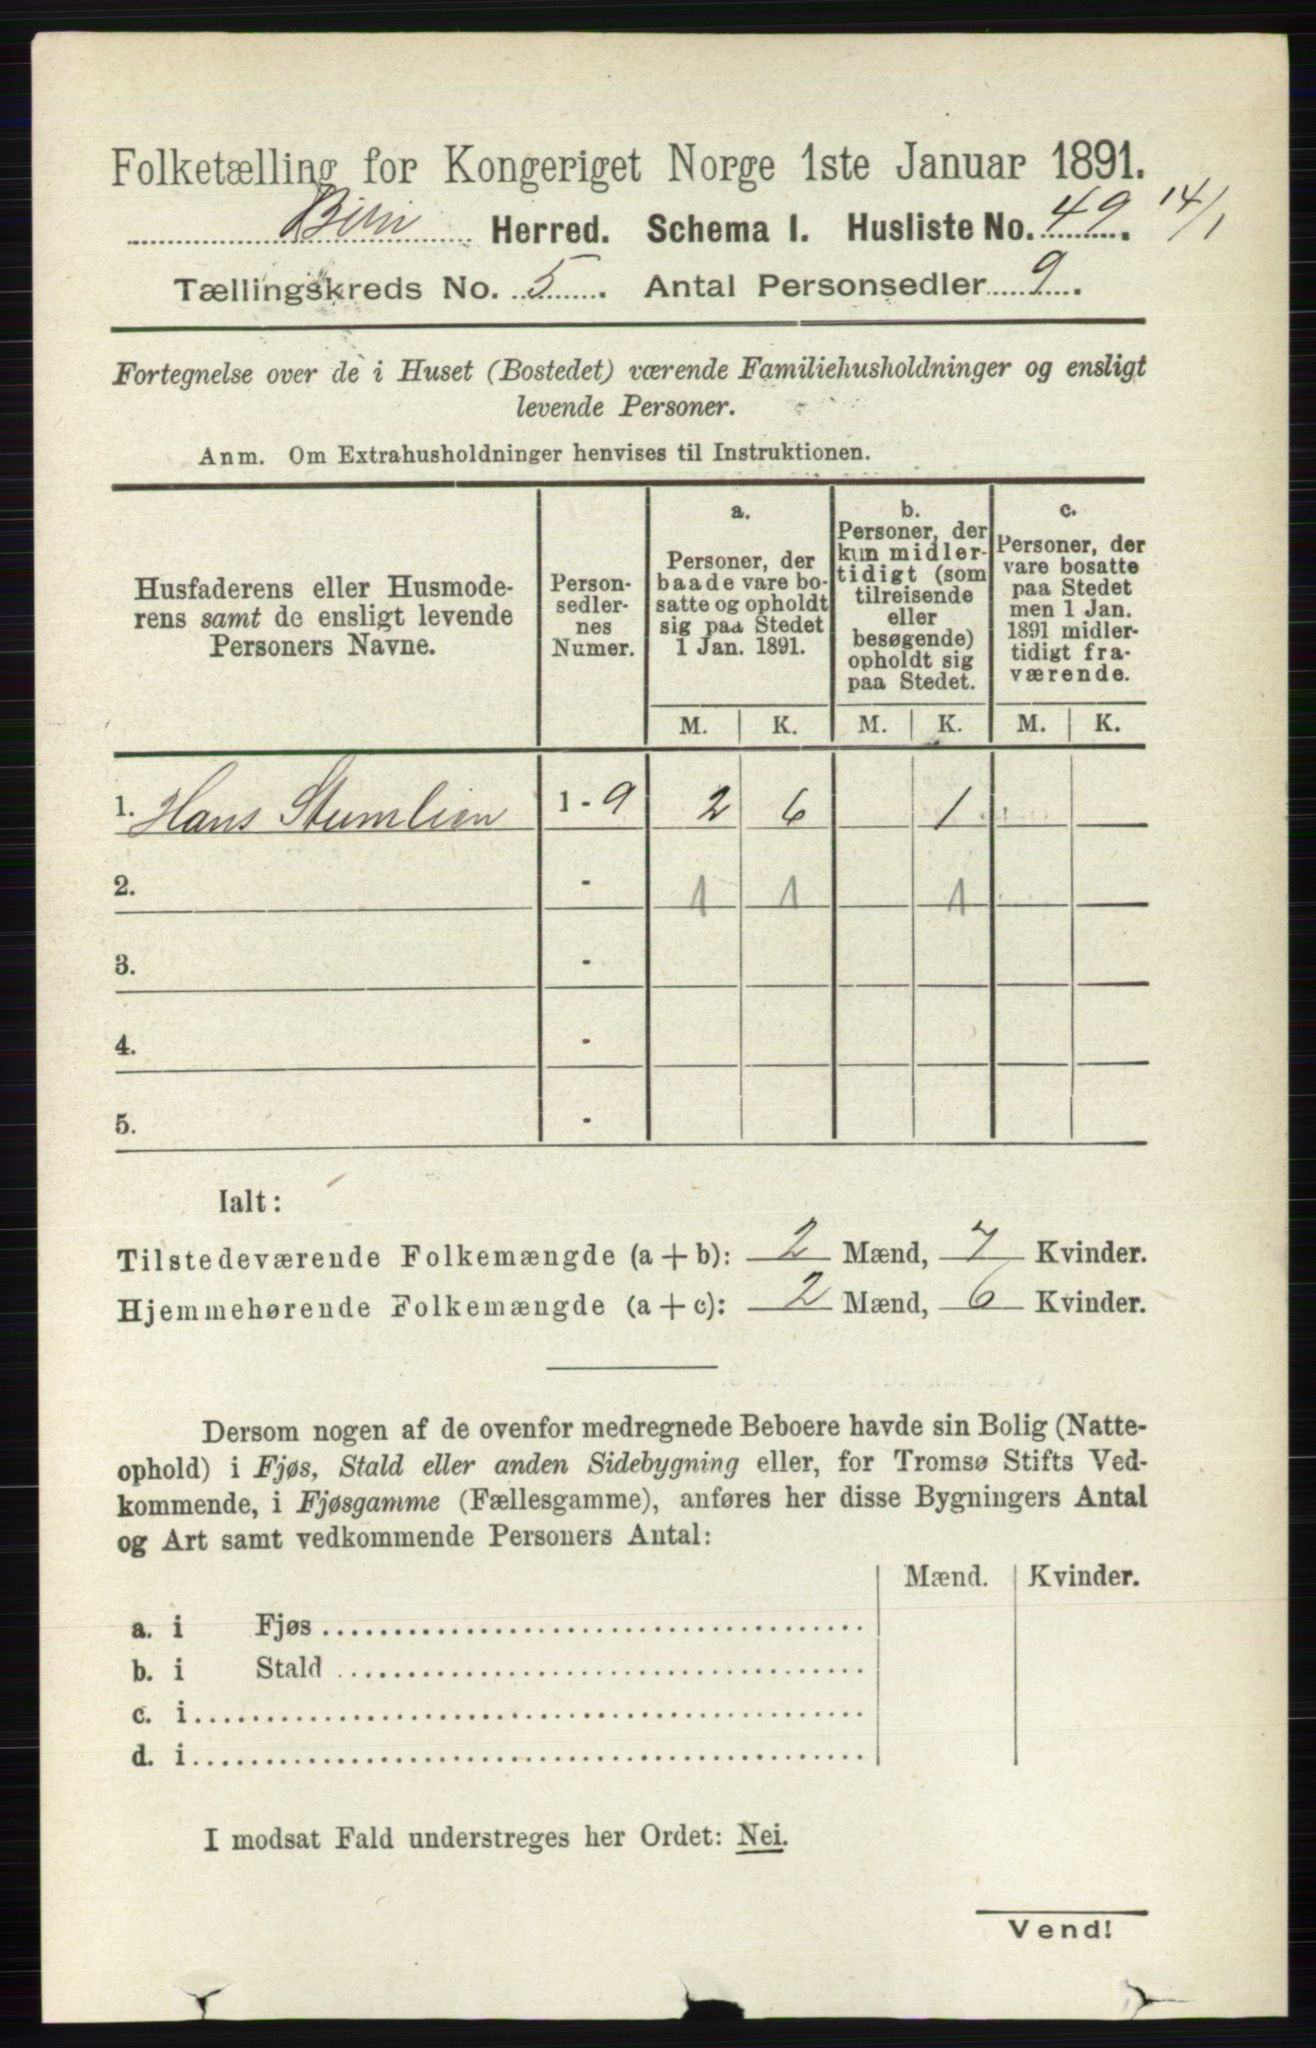 Folketælling for Kongeriget Norge 1ste Januar 1891.
Biri Herred. Schema I. Husliste No. 49. 14/1
Tællingskreds No. 5. Antal Personsedler 9.
Fortegnelse over de i Huset (Bostedet) værende Familiehusholdninger og ensligt
levende Personer.
Anm. Om Extrahusholdninger henvises til Instruktionen.
Husfaderens eller Husmode-
rens samt de ensligt levende
Personers Navne.
Person-
sedler-
nes
Numer.
a.
Personer, der
baade vare bo-
satte og opholdt
sig paa Stedet
1 Jan. 1891.
b.
Personer, der
kun midler-
tidigt (som
tilreisende
eller
besøgende)
opholdt sig
paa Stedet.
c.
Personer, der
vare bosatte
paa Stedet
men 1 Jan.
1891 midler-
tidigt fra-
værende.
M. K. M. K. M. K.
1. Hans Stumlien 1 - 9 2 6 1
2. - 1 1 1
3. -
4. -
5. -
Ialt:
Tilstedeværende Folkemængde (a + b): 2 Mænd, 7 Kvinder.
Hjemmehørende Folkemængde (a + c): 2 Mænd, 6 Kvinder.
Dersom nogen af de ovenfor medregnede Beboere havde sin Bolig (Natte-
ophold) i Fjøs, Stald eller anden Sidebygning eller, for Tromsø Stifts Ved-
kommende, i Fjøsgamme (Fællesgamme), anføres her disse Bygningers Antal
og Art samt vedkommende Personers Antal:
Mænd. Kvinder.
a. i Fjøs
b. i Stald
c. i
d. i
I modsat Fald understreges her Ordet: Nei.
Vend!